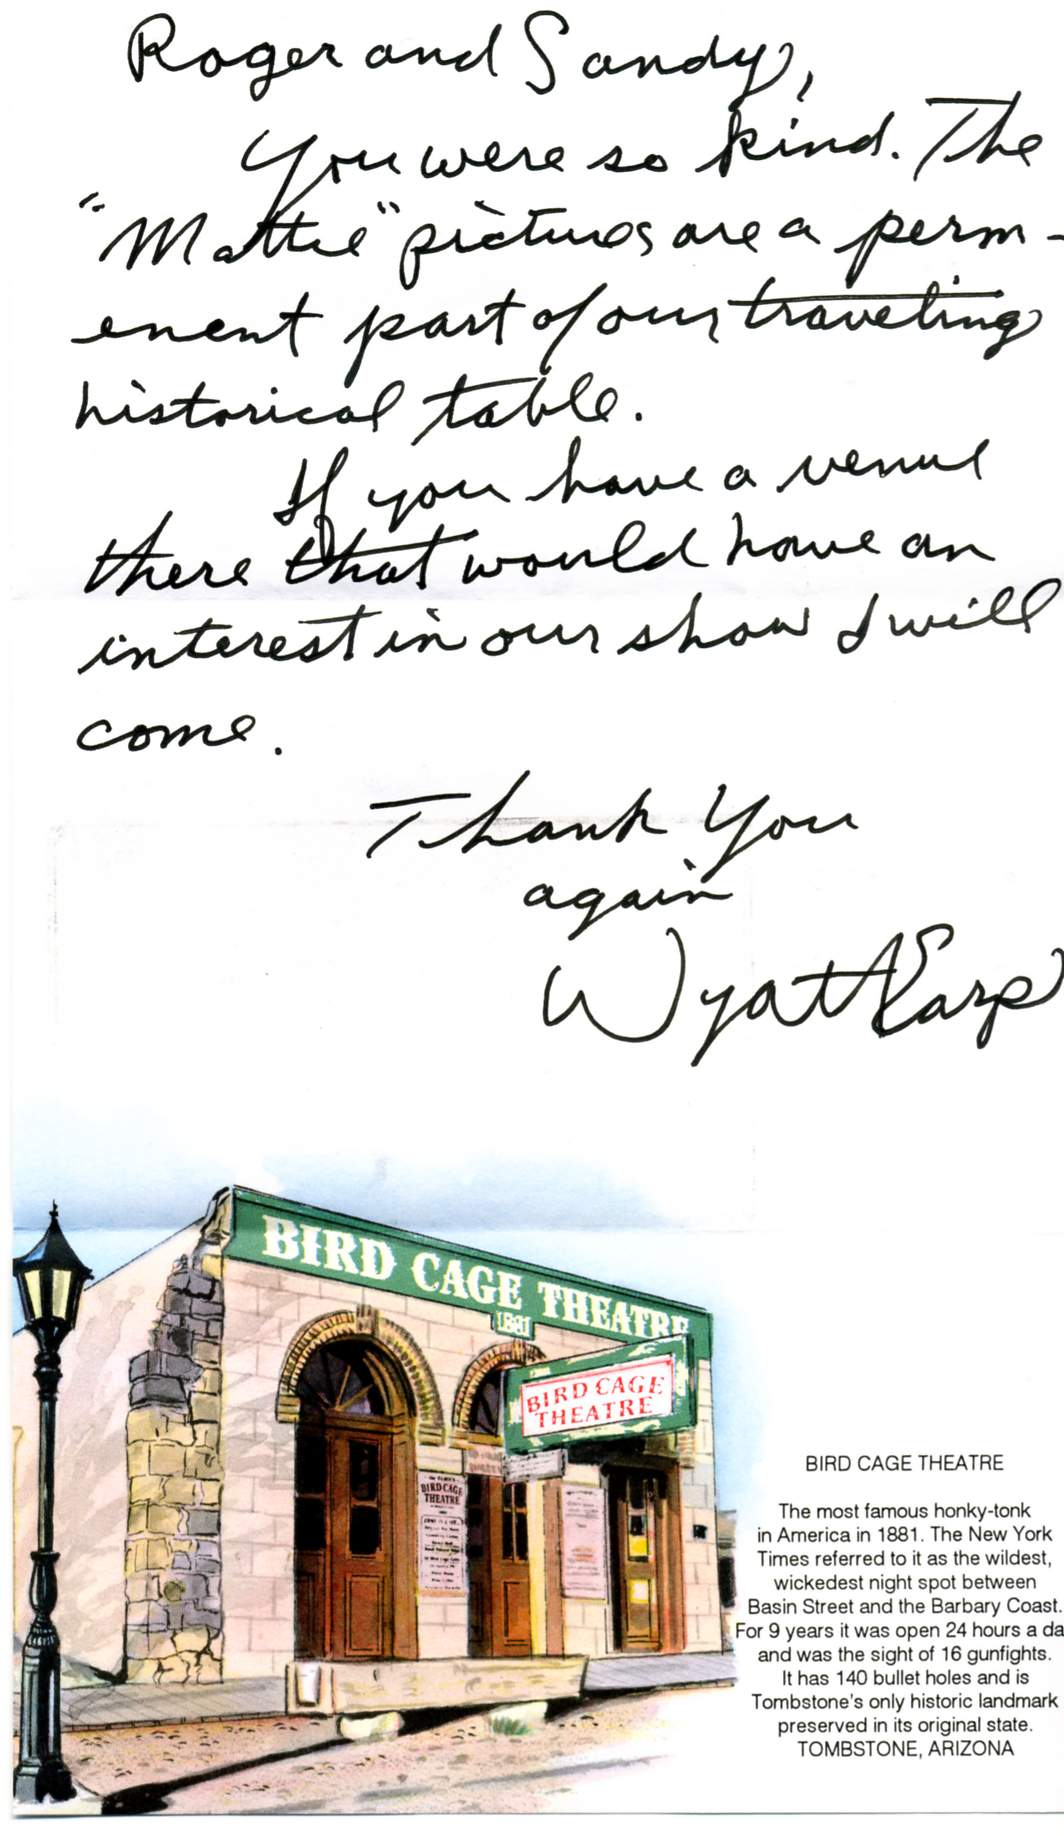 Roger and Sandy,
You were so kind. The
"Mattie" pictures are a perm-
enent part of our traveling
historical table.
If you have a venue
there that would have an
interest in our show I will
come.
Thank You
again
Wyatt Earp
BIRD CAGE THEATRE
1881
BIRD CAGE
THEATRE
BIRD CAGE
THEATRE
BIRD CAGE THEATRE
The most famous honky-tonk
in America in 1881. The New York
Times referred to it as the wildest,
wickedest night spot between
Basin Street and the Barbary Coast.
For 9 years it was open 24 hours a da
and was the sight of 16 gunfights.
It has 140 bullet holes and is
Tombstone's only historic landmark
preserved in its original state.
TOMBSTONE, ARIZONA